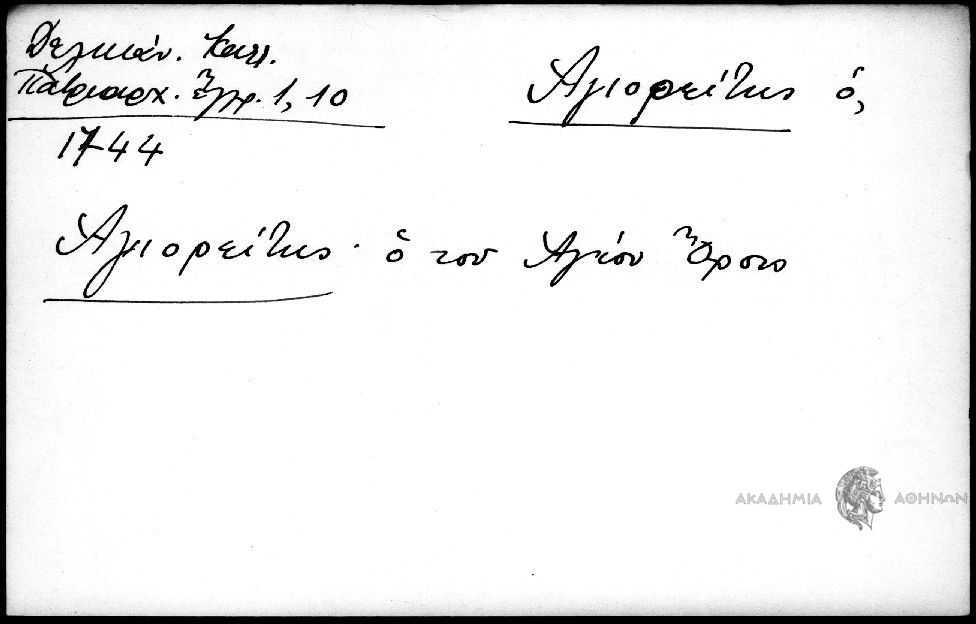 Δελικάν. Καλλ.
Πατριαρχ. Ἔγγρ. 1, 10
1744
Ἁγιορείτης ὁ,
Ἁγιορείτης · ὁ του Ἁγίου Ὄρους
ΑΚΑΔΗΜΙΑ ΑΘΗΝΩΝ